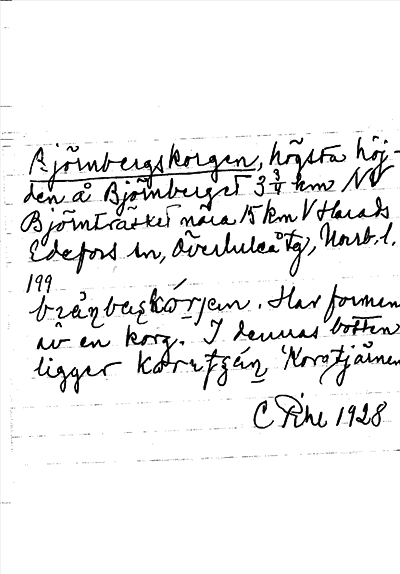 Björnbergskorgen, högsta höj-
den å Björnberget 3 3/4 km NV
Björnträsket nära 15 km V Harads
Edefors sn, Överluleå tg, Norrb. l.
199
. Har formen
av en korg. I dennas botten
ligger 'Korgtjärnen
C Pihl 1928